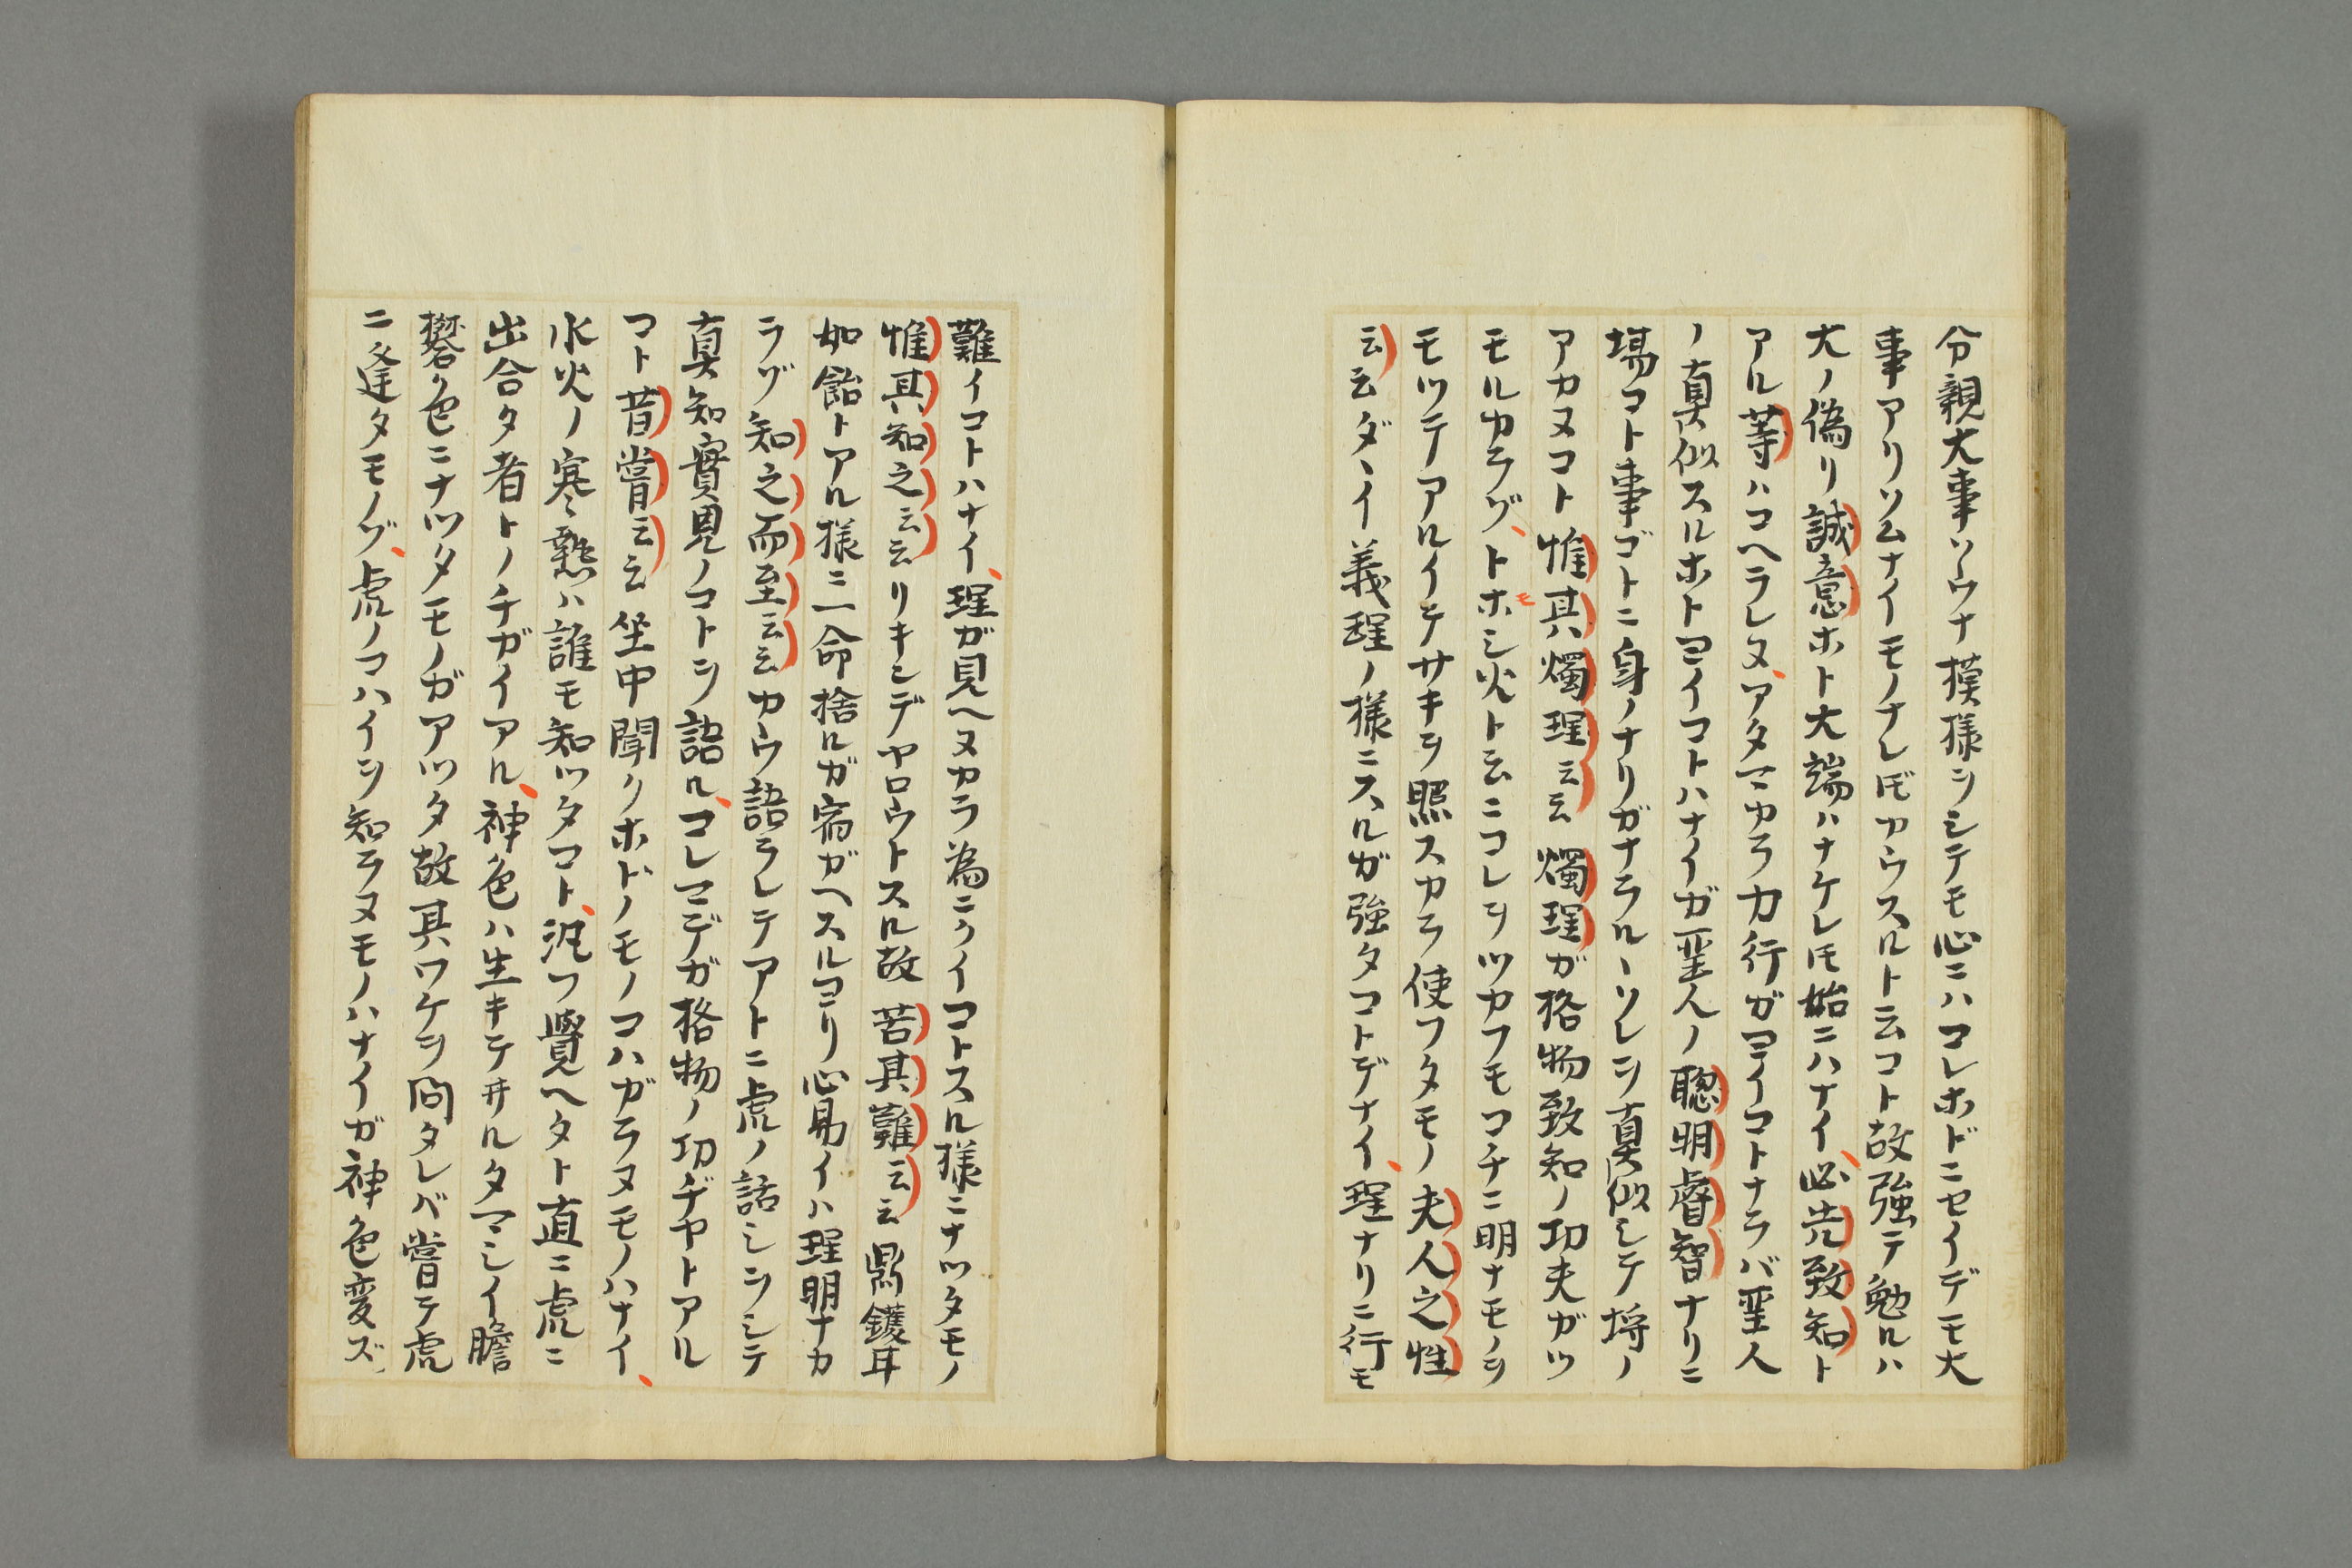 分親大事ソウナ模様ヲシテモ心ニハコレホドニセイデモ大
事アリソムナイモノナレ𪜈カウスルト云コト故強テ勉ルハ
大ノ偽リ誠意ホト大端ハナケレ𪜈始ニハナイ必先致知ト
アル等ハコヘラレヌアタマカラ力行ガヨイコトナラバ聖人
ノ真似スルホトヨイコトハナイガ聖人ノ聰明睿智ナリニ
塲コト事ゴトニ身ノナリガナラルヽソレヲ真似シテ埓ノ
アカヌコト惟其燭理云云燭理ガ格物致知ノ功夫ガツ
モルカラゾトホシ火ト云ニコレヲツカフモコチニ明ナモノヲ
モツテアルイテサキヲ照スカラ使フタモノ夫人之性
云云ダヽイ義理ノ様ニスルガ強タコトデナイ理ナリニ行モ
難イコトハナイ理ガ見ヘヌカラ為ニクイコトスル様ニナツタモノ
惟其知之云云リキンデヤロウトスル故苦其難云云鼎鑊耳
如飴トアル様ニ一命捨ルガ宿ガヘスルヨリ心易イハ理明ナカ
ラゾ知之而至云云カウ語ラレテアトニ虎ノ話シヲシテ
真知實見ノコトヲ語ルコレマデガ格物ノ功ヂヤトアル
コト昔嘗云云坐中聞クホドノモノコハガラヌモノハナイ
水火ノ寒熱ハ誰モ知ツタコト汎フ覺ヘタト直ニ虎ニ
出合タ者トノチガイアル神色ハ生キテ井ルタマシイ膽
礬色ニナツタモノガアツタ故其ワケヲ問タレバ嘗テ虎
ニ逢タモノゾ虎ノコハイヲ知ラヌモノハナイガ神色変ズ